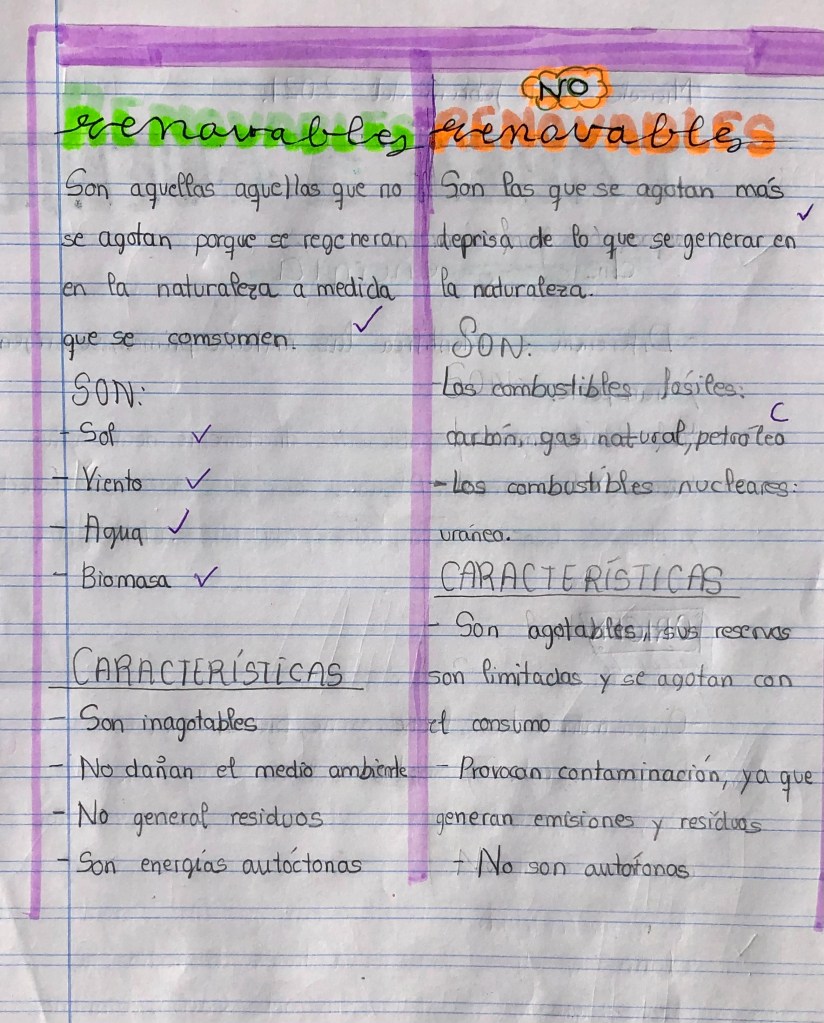 renovables
Son aquellas aquellas que no
se agotan porque se regeneran
en la naturaleza a medida
que se comsumen.
SON:
- Sol
- Viento
- Agua
- Biomasa
CARACTERÍSTICAS
- Son inagotables
- No dañan el medio ambiente
- No general residuos
- Son energías autóctonas
NO
renovables
Son las que se agotan más
deprisa de lo que se generar en
la naturaleza.
SON:
- Los combustibles fósiles:
carbón, gas natural, petroleo
- Los combustibles nucleares:
uraneo.
CARACTERÍSTICAS
- Son agotables, sus reservas
son limitadas y se agotan con
el consumo
- Provocan contaminación, ya que
generan emisiones y residuos
- No son autotonas